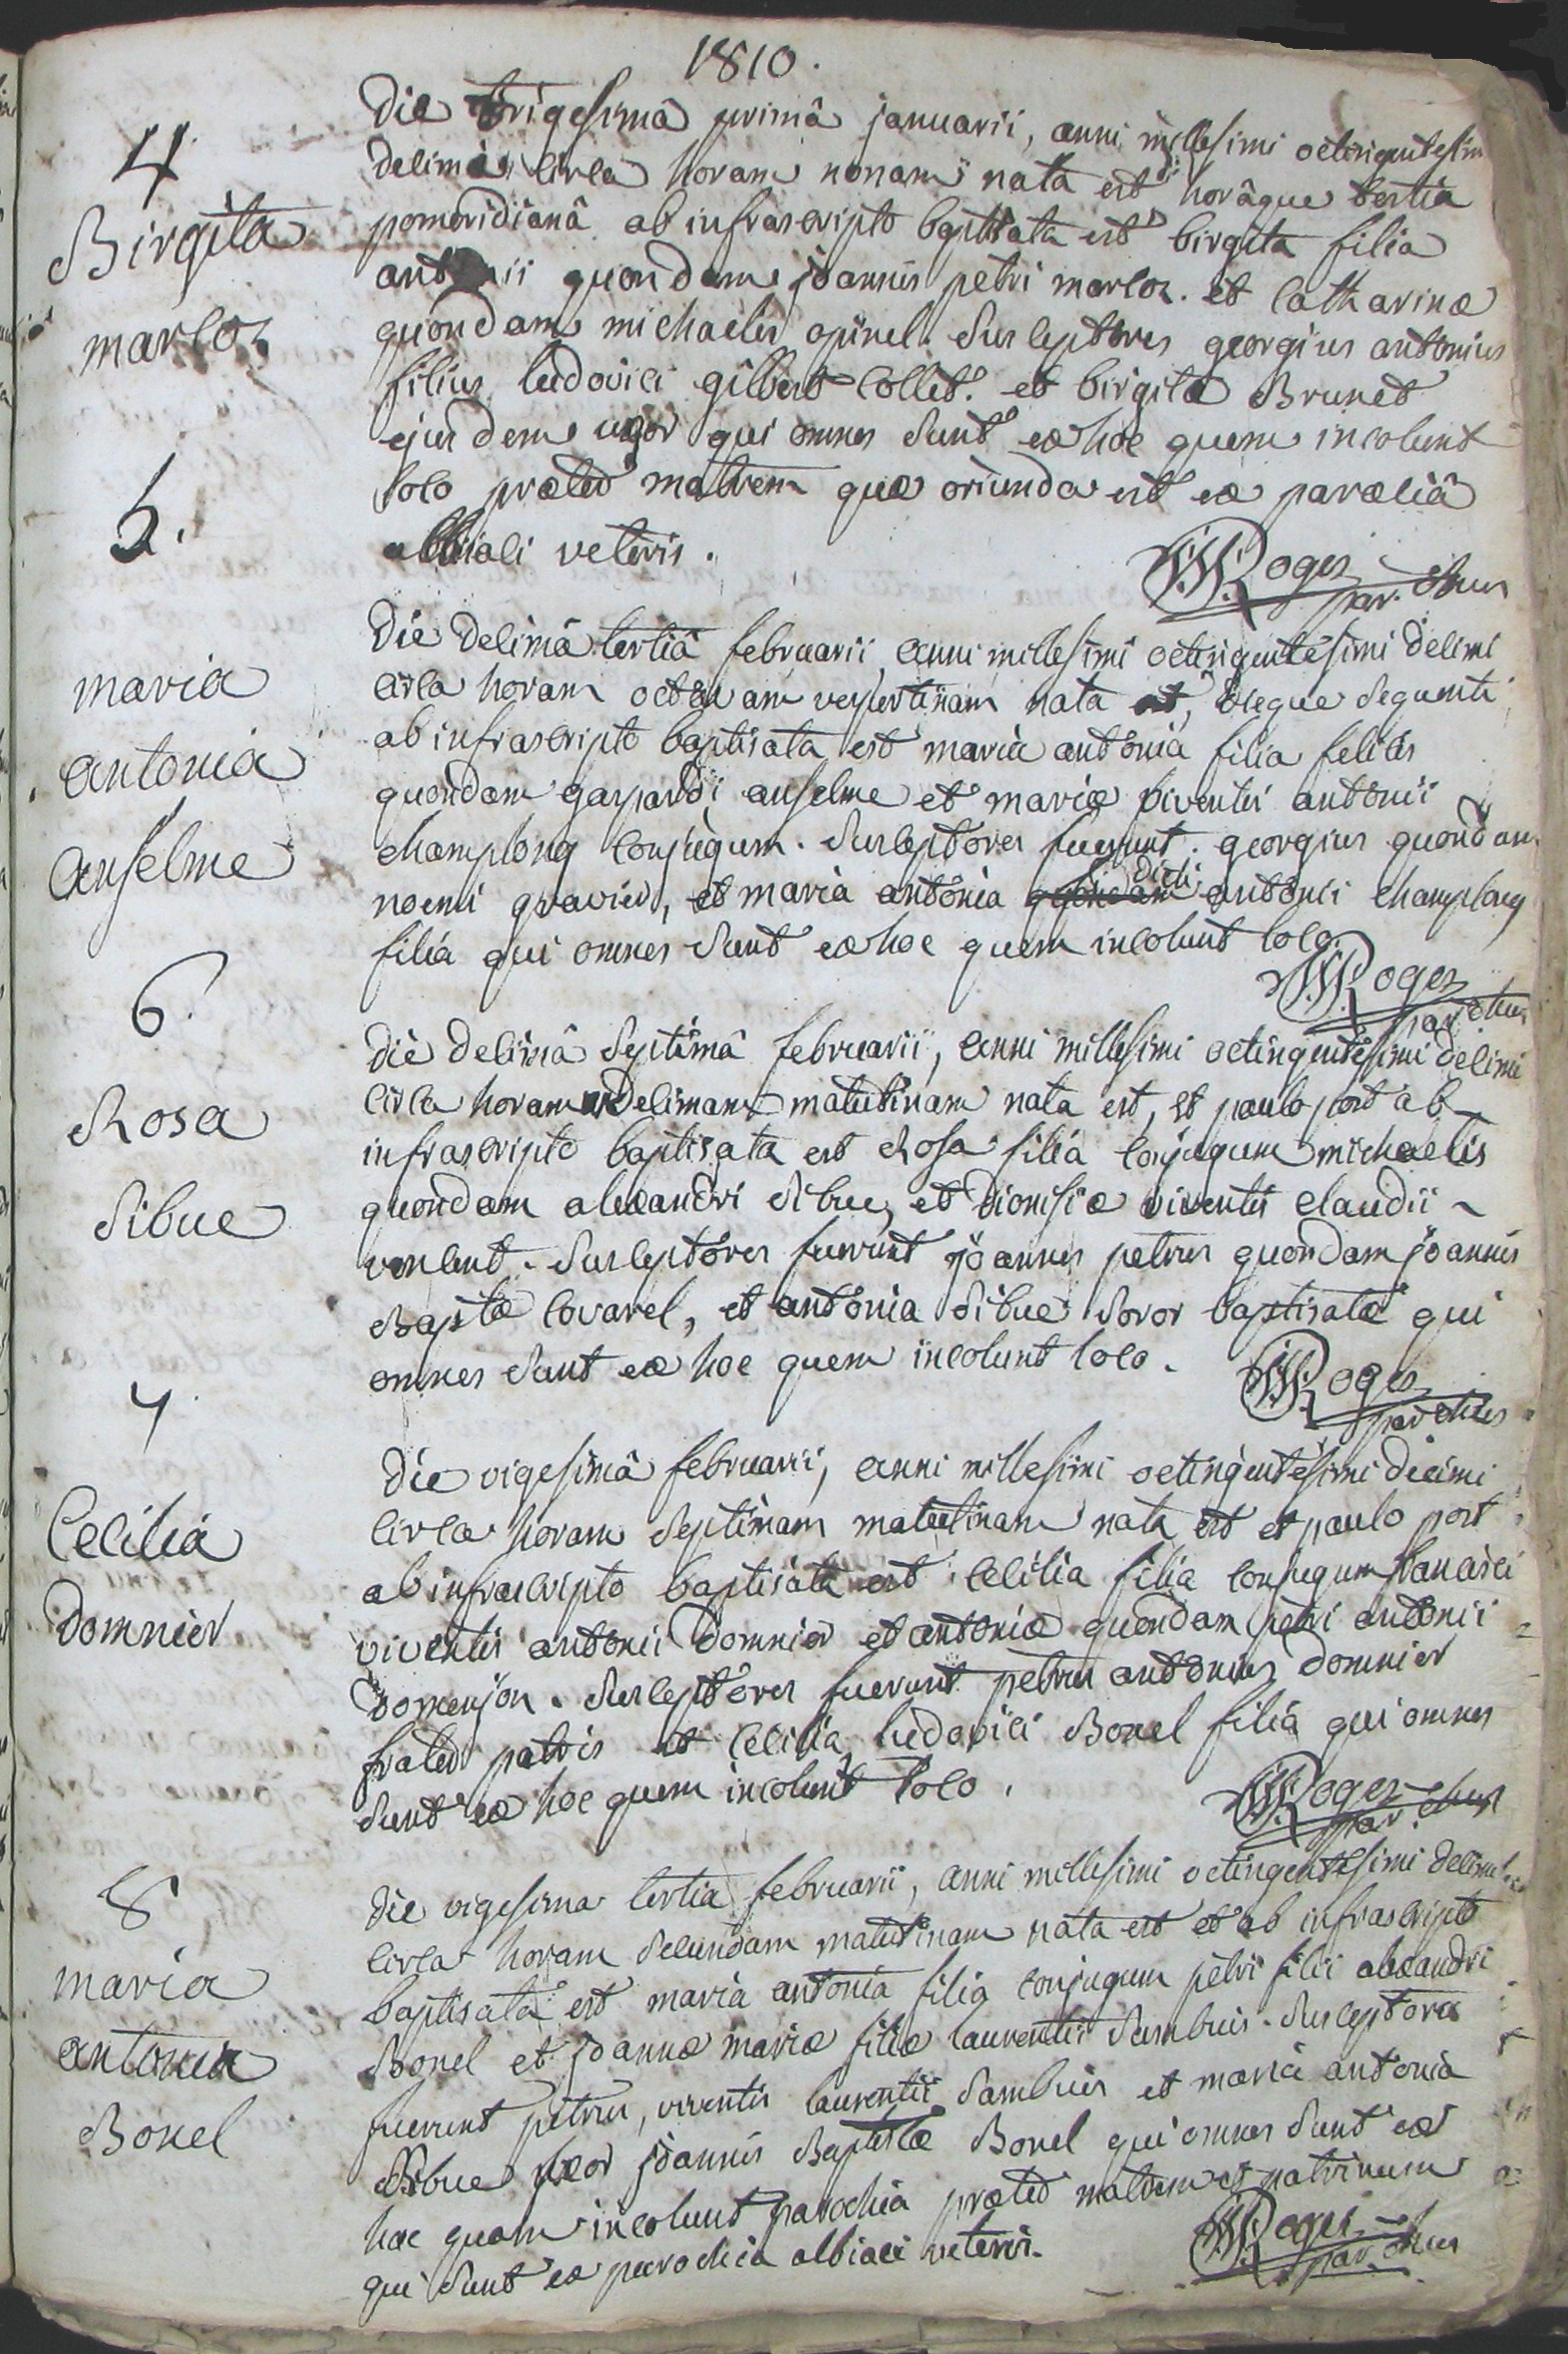 1810.
4
Birgita
marcoz
Die trigesimâ primâ januarii, anni millesimi octingentesimi
decimi circa horam nonam nata est horâque tertiâ
pomeridianâ ab infrascripto baptisata est birgita filia
antonii quondam joannis petri marcoz. et catharinæ
quondam michaelis opinel. Susceptores georgius antonius
filius ludovici gilbert-collet. et birgita Brunet
ejusdem uxor qui omnes sunt ex hoc quem incolunt
loco præter matrem quæ oriunda est ex paræciâ
albiaci veteris.
JWRoges
parochus
5.
maria
antonia
anselme
Die decimâ tertiâ februarii, anni millesimi octingentesimi decimi
circa horam octavam vespertinam nata est, dieque sequenti
ab infrascripto baptisata est maria antonia filia felicis
quondam gaspardi anselme et mariæ viventis antonii
champlong conjugum. Susceptores fuerunt. georgius quondam
noemi gravier, et maria antonia dicti antonii champlong
filia qui omnes sunt ex hoc quem incolunt loco.
JWRoges
parochus
6.
Rosa
Sibue
Die decimâ septimâ februarii, anni millesimi octingentesimi decimi
circa horam decimam matutinam nata est, et paulo post ab
infrascripto baptisata est Rosa filia conjugum michaelis
quondam alexandri Sibue, et Dionisiæ viventis claudii
vincent. Susceptores fuerunt joannes petrus quondam joannis
Baptæ covarel, et antonia Sibue soror baptisatæ qui
omnes sunt ex hoc quem incolunt loco.
JWRoges
parochus
7
Cecilia
Domnier
Die vigesimâ februarii, anni millesimi octingentesimi decimi
circa horam septimam matutinam nata est et paulo post
ab infrascripto baptisata est Cecilia filia conjugum francisci
viventis antonii Domnier et antoniæ quondam petri antonii
Domenjon. Susceptores fuerunt petrus antonius Domnier
frater patris et Cecilia ludovici Bonel filia qui omnes
sunt ex hoc quem incolunt loco.
JWRoges
parochus
8
maria
antonia
Bonel
Die vigesima tertia februarii, anni millesimi octingentesimi decimi
circa horam secundam matutinam nata est et ab infrascripto
baptisata est maria antonia filia conjugum petri filii alexandri
Bonel et joannæ mariæ filiæ laurentii Sambuis. Susceptores
fuerunt petrus, viventis laurentii Sambuis et maria antonia
Sibue uxor joannis Baptistæ Bonel qui omnes sunt ex
hac quam incolunt parochia præter matrem et patrinum
qui sunt ex parochia albiaci veteris.
JWRoges
parochus